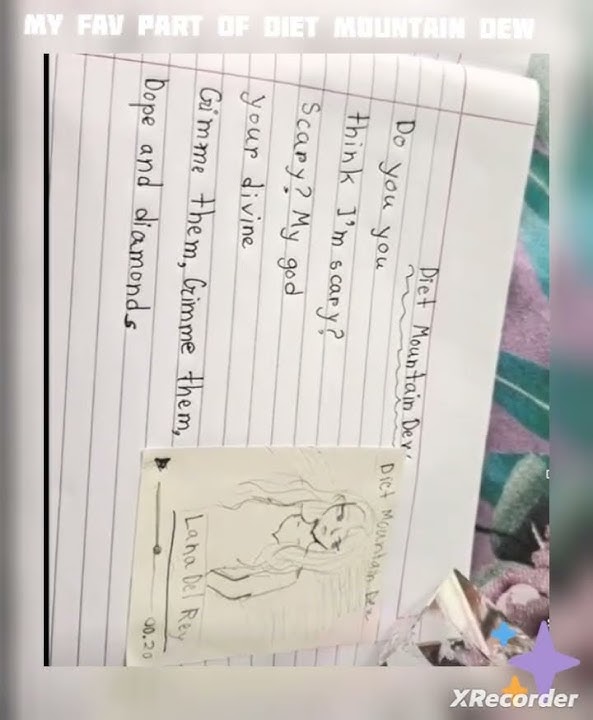 MY FAV PART OF DIET MOUNTAIN DEW
Diet Mountain Dew
Do you you
think I'm scary?
scary? My god
your divine
Gimme them, Gimme them,
Dope and diamonds
Diet Mountain Dew
Lana Del Rey
00.20
XRecorder